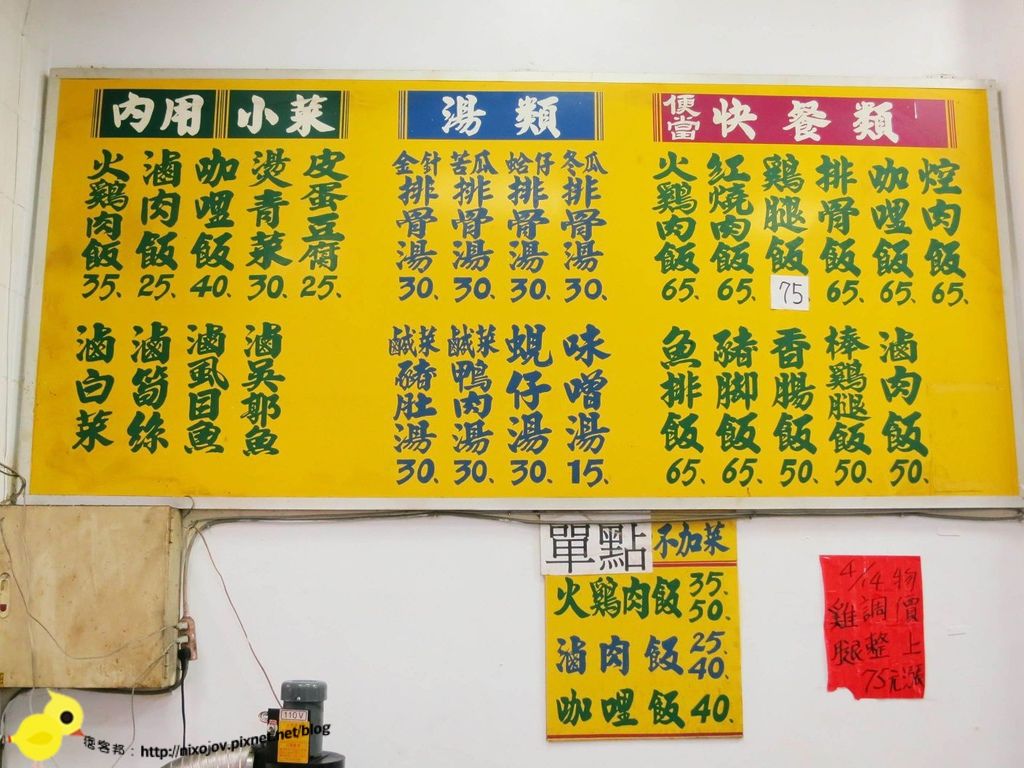 內用 小菜
火鷄肉飯 35、
滷肉飯 25、
咖哩飯 40、
燙青菜 30、
皮蛋豆腐 25、
滷白菜
滷筍絲
滷虱目魚
滷吳郭魚
湯類
金針排骨湯 30、
苦瓜排骨湯 30、
蛤仔排骨湯 30、
冬瓜排骨湯 30、
鹹菜豬肚湯 30、
鹹菜鴨肉湯 30、
蜆仔湯 30、
味噌湯 15、
便當 快餐類
火鷄肉飯 65、
紅燒肉飯 65、
鷄腿飯 75、
排骨飯 65、
咖哩飯 65、
焢肉飯 65、
魚排飯 65、
豬脚飯 65、
香腸飯 50、
棒鷄腿飯 50、
滷肉飯 50、
單點 不加菜
火鷄肉飯 35、 50、
滷肉飯 25、 40、
咖哩飯 40、
物價上漲
4/14調整75元
雞腿
110V
痞客邦：http://nixojov.pixnet.net/blog